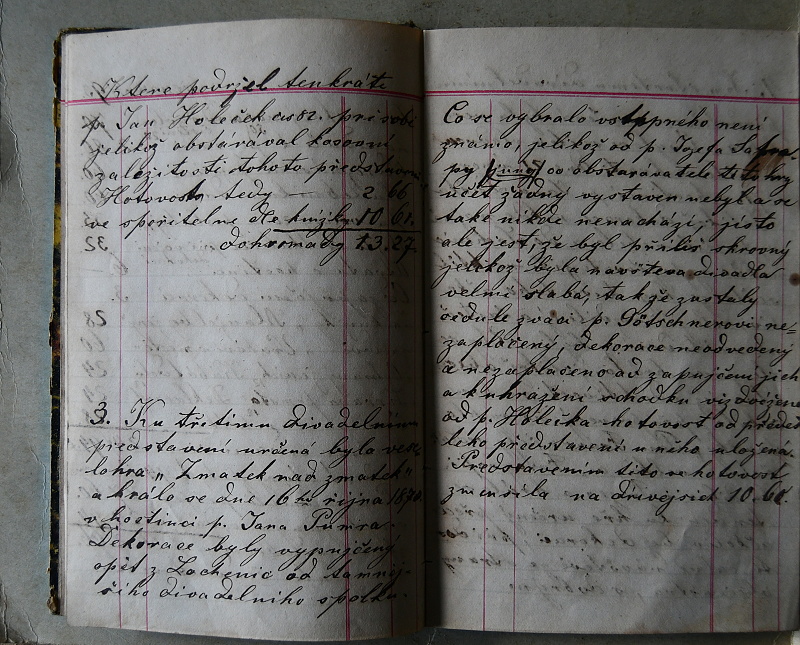 Ktere podržel tenkráte
p. Jan Holeček co sz. prisobi
jelikož obstarával kosovní
zaležitosti tohoto představení
Hotovost tedy — 2 66
ve spořitelne dle knižky 10 61.
Dohromady 13.27
3. Ku třetímu divadelnímu
představení určená byla vese
lohra „Zmatek nad zmatek"
a hrálo se dne 16ho října 1870
v hostinci p. Jana Pumra.
Dekorace byly vypujčený
opět z Lochenic od tamněj-
šího divadelního spolku.
Co se vybralo vstupného není
známo, jelikož od p. Josefa
co obstaravatele té to hry
učet žádný vystaven nebyl a se
také nikde nenachází, jisto
ale jest, že byl příliš skrovný
jelikož byla navšteva divadla
velmi slabá, tak že zustaly
cedule zvací p. Götschnerovi ne-
zaplačený, dekorace neodvedený
a nezaplaceno od zapujčení jich
a k uhražení schodku vyzdvižena
od p. Holečka hotovost od předeš
leho představení u něho uložená.
Představením tito se hotovost
zmenšila na dřívejsich 10.61.